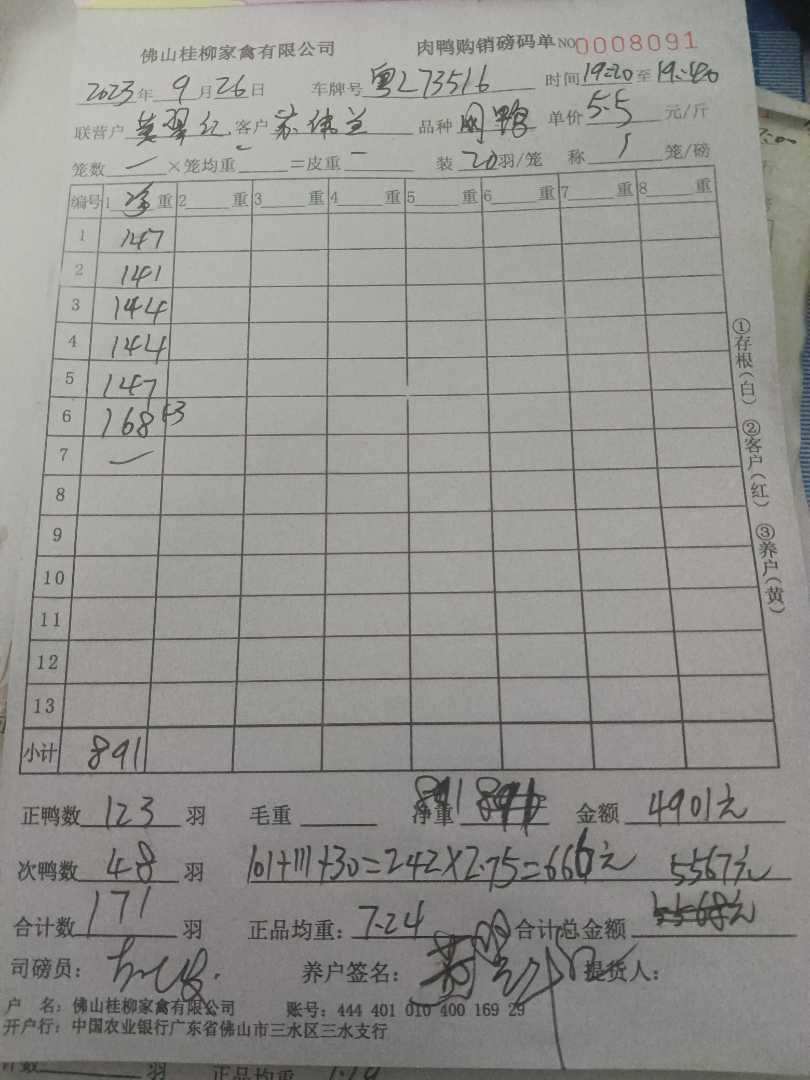 佛山桂柳家禽有限公司 肉鸭购销磅码单 NO 0008091
2023年 9月26日 车牌号 粤L73516 时间 19:20 至 19:40
联营户 客户 品种 单价 5.5 元/斤
笼数 一 ×笼均重 =皮重 一 装 20 羽/笼 称 1 笼/磅
编号 1 净 重 2 重 3 重 4 重 5 重 6 重 7 重 8 重
1 147
2 141
3 144
4 144
5 147
6 168 +3
7
8
9
10
11
12
13
小计 891
正鸭数 123 羽 毛重 净重 891 金额 4901元
次鸭数 48 羽 101+111+30=242×2.75=666元 5567元
合计数 171 羽 正品均重: 7.24 合计总金额 5568元
司磅员: 养户签名: 提货人:
户 名: 佛山桂柳家禽有限公司 账号: 444 401 010 400 169 29
开户行: 中国农业银行广东省佛山市三水区三水支行
①存根(白) ②客户(红) ③养户(黄)
羽 正品均重